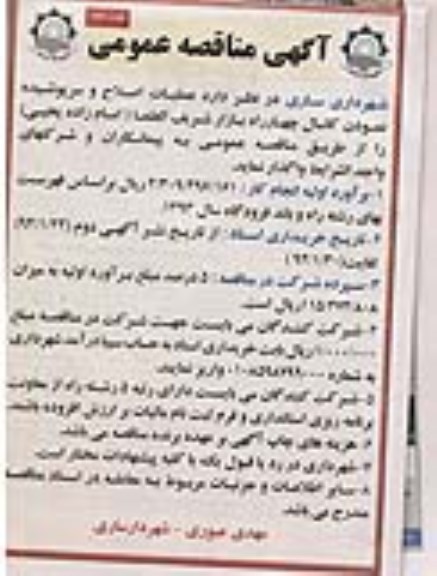 آگهی مناقصه عمومی
شهرداری ساری در نظر دارد عملیات اصلاح و سرپوشیده
نمودن کانال چهارراه بازار شریف العلما ( امام زاده یحیی)
را از طریق مناقصه عمومی به پیمانکاران و شرکتهای
واجد الشرایط واگذار نماید.
۱-برآورد اولیه انجام کار : ریال براساس فهرست
بهای رشته راه و باند فرودگاه سال ۱۳۹۳.
۲-تاریخ خریداری اسناد: از تاریخ نشر آگهی دوم
لغایت
۳-سپرده شرکت در مناقصه : ۵ درصد مبلغ برآورد اولیه به میزان
ریال است.
۴-شرکت کنندگان می بایست جهت شرکت در مناقصه مبلغ
ریال بابت خریداری اسناد به حساب سیبا درآمد شهرداری
به شماره واریز نمایند.
۵-شرکت کنندگان می بایست دارای رتبه ۵ رشته راه از معاونت
برنامه ریزی استانداری و فرم ثبت نام مالیات بر ارزش افزوده باشند.
۶- هزینه های چاپ آگهی بر عهده برنده مناقصه می باشد.
۷-شهرداری در رد یا قبول یک یا کلیه پیشنهادات مختار است.
۸-سایر اطلاعات و جزئیات مربوط به معامله در اسناد مناقصه
مندرج می باشد.
مهدی عبوری - شهردار ساری